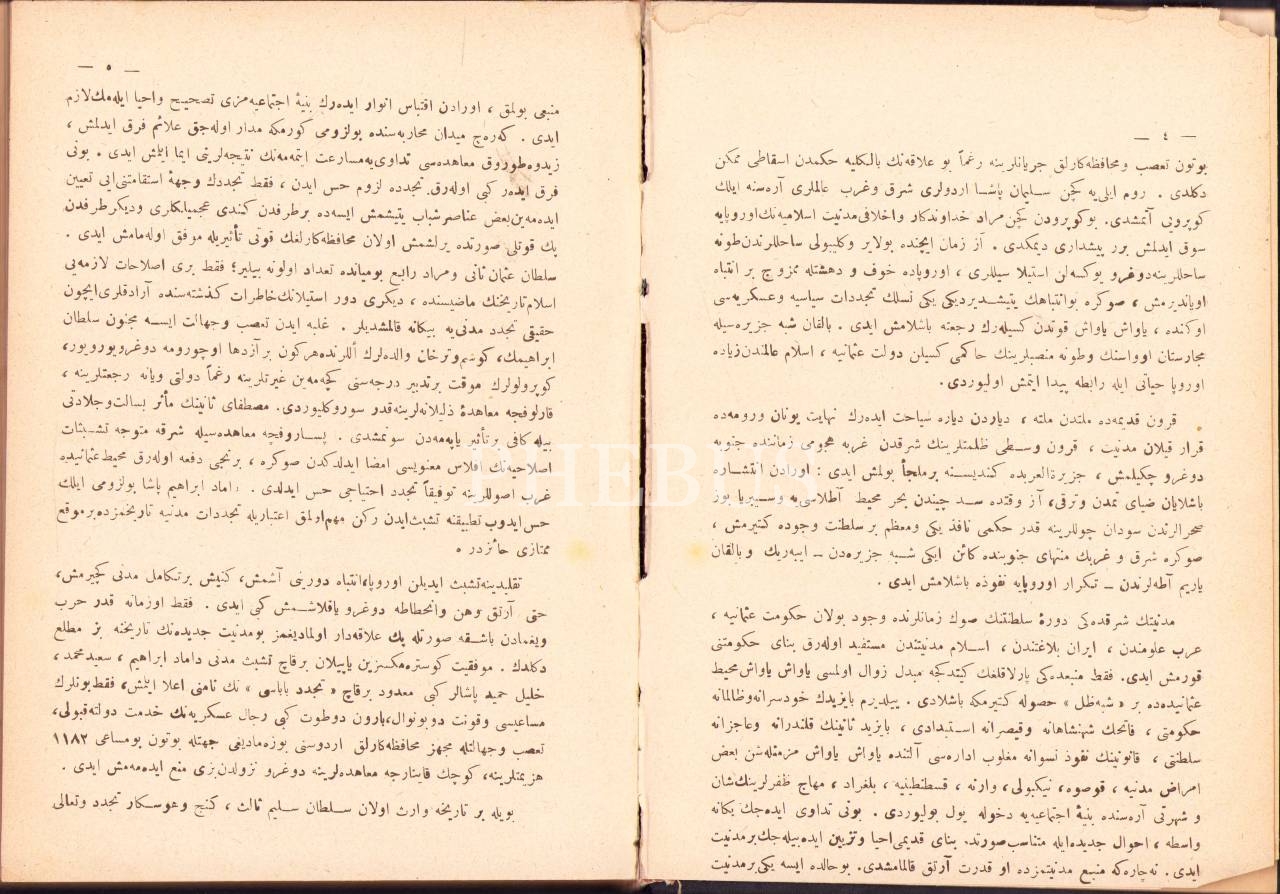 — ٤ —
بوتون تعصب ومحافظه‌كارلق جريانلرينه رغماً بو علاقه‌نك بالكليه حكمدن اسقاطى ممكن
دكلدى . روم ايلى‌يه كچن سليمان پاشا اردولرى شرق وغرب عالملرى آره‌سنه ايلك
كوپرويى آتمشدى. بو كوپرودن كچن مراد خداوندكار واخلافى مدنيت اسلاميه‌نك اوروپايه
سوق ايدلمش برر پيشدارى ديمكدى . آز زمان ايچنده بولاير وكليبولى ساحللرندن طونه
ساحللرينه دوغرو يوكسه‌لن استيلا سيللرى ، اوروپاده خوف و دهشتله ممزوج بر انتباه
اوياندیرمش ، صوكره بو انتباهك يتيشديرديكى يكى نسلك تجددات سياسيه وعسكريه‌سى
اوكنده ، ياواش ياواش قوتدن كسيله‌رك رجعته باشلامش ايدى . بالقان شبه جزيره‌سيله
مجارستان اوواسنك وطونه منصبلرينك حاكمى كسيلن دولت عثمانيه ، اسلام عالمندن زياده
اوروپا حياتى ايله رابطه پيدا ايتمش اوليوردى .
قرون قديمه‌ده ملتدن ملته ، دياردن دياره سياحت ايده‌رك نهايت يونان ورومه‌ده
قرار قيلان مدنيت ، قرون وسطى ظلمتلرينك شرقدن غربه هجومى زماننده جنوبه
دوغرو چكيلمش ، جزيرة‌العربده كنديسنه بر ملجأ بولمش ايدى : اورادن انتشاره
باشلايان ضياى تمدن وترقى، آز وقتده سد چيندن بحر محيط آطلاسى‌يه و سيبريا بوز
صحرالرندن سودان چوللرينه قدر حكمى نافذ يكى ومعظم بر سلطنت وجوده كتيرمش ،
صوكره شرق و غربك منتهاى جنوبنده كائن ايكى شبه جزيره‌دن ــ ايبه‌ريك و بالقان
ياريم آطه‌لرندن ــ تكرار اوروپايه نفوذه باشلامش ايدى .
مدنيتك شرقده‌كى دورۀ سلطنتنك صوك زمانلرنده وجود بولان حكومت عثمانيه ،
عرب علومندن ، ايران بلاغتندن ، اسلام مدنيتندن مستفيد اوله‌رق بناى حكومتنى
قورمش ايدى. فقط منبعده‌كى پارلاقلغك كيتدكجه مبدل زوال اولمسى ياواش ياواش محيط
عثمانيده‌ده بر « شبه ظل » حصوله كتيرمكه باشلادى . ييلديرم بايزيدك خودسرانه وظالمانه
حكومتى ، فاتحك شهنشاهانه وقيصرانه استبدادى ، بايزيد ثانينك قلندرانه وعاجزانه
سلطنتى ، قانونينك نفوذ نسوانه مغلوب اداره‌سى آلتنده ياواش ياواش مزمنله‌شن بعض
امراض مدنيه ، قوصوه، نيكبولى، وارنه ، قسطنطينيه ، بلغراد ، مهاج ظفرلرينك شان
و شهرتى آره‌سنده بنيۀ اجتماعيه‌يه دخوله يول بوليوردى . بونى تداوى ايده‌جك يكانه
واسطه ، احوال جديده ايله متناسب صورتده بناى قديمى احيا وتزيين ايده‌بيله‌جك بر مدنيت
ايدى . نه چاره كه منبع مدنيتمزده او قدرت آرتق قالمامشدى. بو حالده ايسه يكى بر مدنيت
— ٥ —
منبعى بولمق ، اورادن اقتباس انوار ايده‌رك بنيۀ اجتماعيه‌مزى تصحيح واحيا ايله‌مك لازم
ايدى . كه‌ره‌چ ميدان محاربه‌سنده بو لزومى كورمكه مدار اوله‌جق علائم فرق ايدلمش ،
زيدوه‌طوروق معاهده‌سى تداوى‌يه مسارعت ايتمه‌مه‌نك نتيجه‌لرينى ايما ايتمش ايدى . بونى
فرق ايده‌ر كبى اوله‌رق تجدده لزوم حس ايدن ، فقط تجددك وجهۀ استقامتنى ايى تعيين
ايده‌مه‌ين بعض عناصر شباب يتيشمش ايسه‌ده بر طرفدن كندى عجميلكلرى وديكر طرفدن
پك قوتلى صورتده يرلشمش اولان محافظه‌كارلغك قوتى تأثيريله موفق اوله‌مامش ايدى .
سلطان عثمان ثانى ومراد رابع بو ميانده تعداد اولونه بيلير؛ فقط برى اصلاحات لازمه‌يى
اسلام تاريخنك ماضيسنده ، ديكرى دور استيلانك خاطرات كذشته‌سنده آرادقلرى ايچون
حقيقى تجدد مدنى‌يه بيكانه قالمشديلر . غلبه ايدن تعصب وجهالت ايسه مجنون سلطان
ابراهيمك، كوسم وترخان والده‌لرك أللرنده هركون بر آز دها اوچورومه دوغرو يورويور،
كوپرولولرك موقت بر تدبير درجه‌سنى كچه‌مه‌ين غيرتلرينه رغماً دولتى ويانه رجعتلرينه ،
قارلوفجه معاهدۀ ذليلانه‌لرينه قدر سوروكليوردى. مصطفاى ثانينك مآثر بسالت وجلادتى
بيله كافى بر تأثير ياپه‌مه‌دن سونمشدى . پساروفجه معاهده‌سيله شرقه متوجه تشبثات
اصلاحيه‌نك افلاس معنويسى امضا ايدلدكدن صوكره ، برنجى دفعه اوله‌رق محيط عثمانيده
غرب اصوللرينه توفيقاً تجدد احتياجى حس ايدلدى . داماد ابراهيم پاشا بو لزومى ايلك
حس ايدوب تطبيقنه تشبث ايدن ركن مهم اولمق اعتباريله تجددات مدنيه تاريخمزده بر موقع
ممتازى حائزدر .
تقليدينه تشبث ايديلن اوروپا، انتباه دورينى آشمش، كنيش بر تكامل مدنى كچيرمش،
حتى آرتق وهن وانحطاطه دوغرو ياقلاشمش كبى ايدى . فقط او زمانه قدر حرب
ويغمادن باشقه صورتله پك علاقه‌دار اولماديغمز بو مدنيت جديده‌نك تاريخنه بز مطلع
دكلدك . موفقيت كوستره‌مكسزين ياپيلان برقاچ تشبث مدنى داماد ابراهيم ، سعيد محمد ،
خليل حميد پاشالر كبى معدود برقاچ « تجدد باباسى » نك نامنى اعلا ايتمش، فقط بونلرك
مساعيسى وقونت دو بونوال، بارون دوطوت كبى رجال عسكريه‌نك خدمت دولته قبولى،
تعصب وجهالتله مجهز محافظه‌كارلق اردوسنى بوزه‌ماديغى جهتله بوتون بو مساعى ١١٨٢
هزيمتلرينه، كوچك قاينارجه معاهده‌لرينه دوغرو نزولدن بزى منع ايده‌مه‌مش ايدى .
بويله بر تاريخه وارث اولان سلطان سليم ثالث ، كنج وهوسكار تجدد وتعالى
PHEBUS